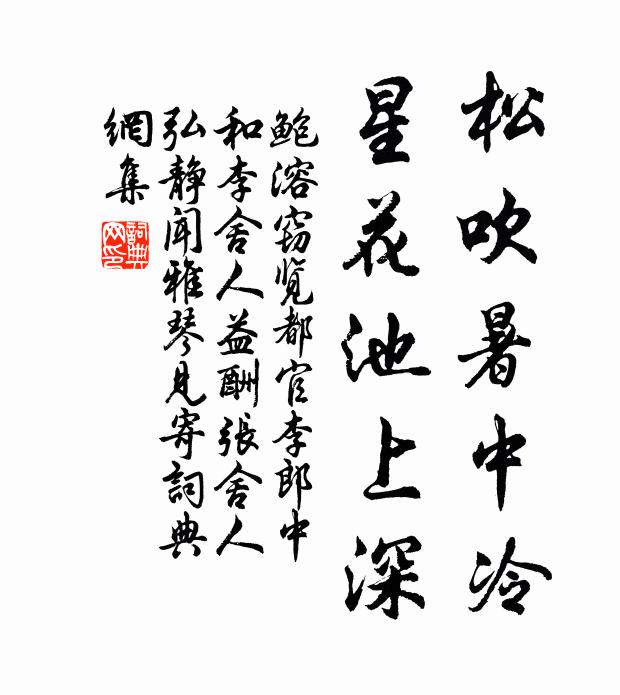 松吹暑中冷
星花池上深
鲍溶窃览都官李郎中
和李舍人益酬張舍人
弘静闻雅琴見寄詞典
網集
詞典
网印